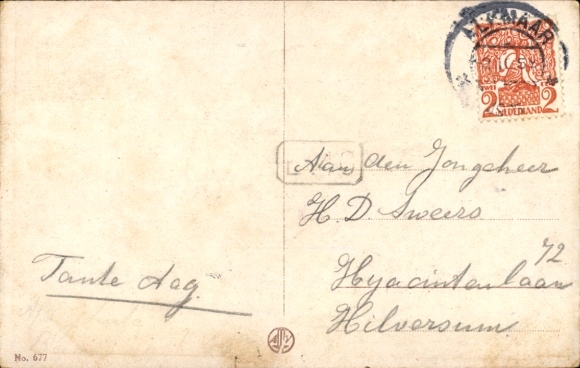 ALKMAAR
2 2
NEDERLAND
Aan den Jongeheer
H. D Sweers
72
Hyacintenlaan
Hilversum
Tante Aag.
No. 677